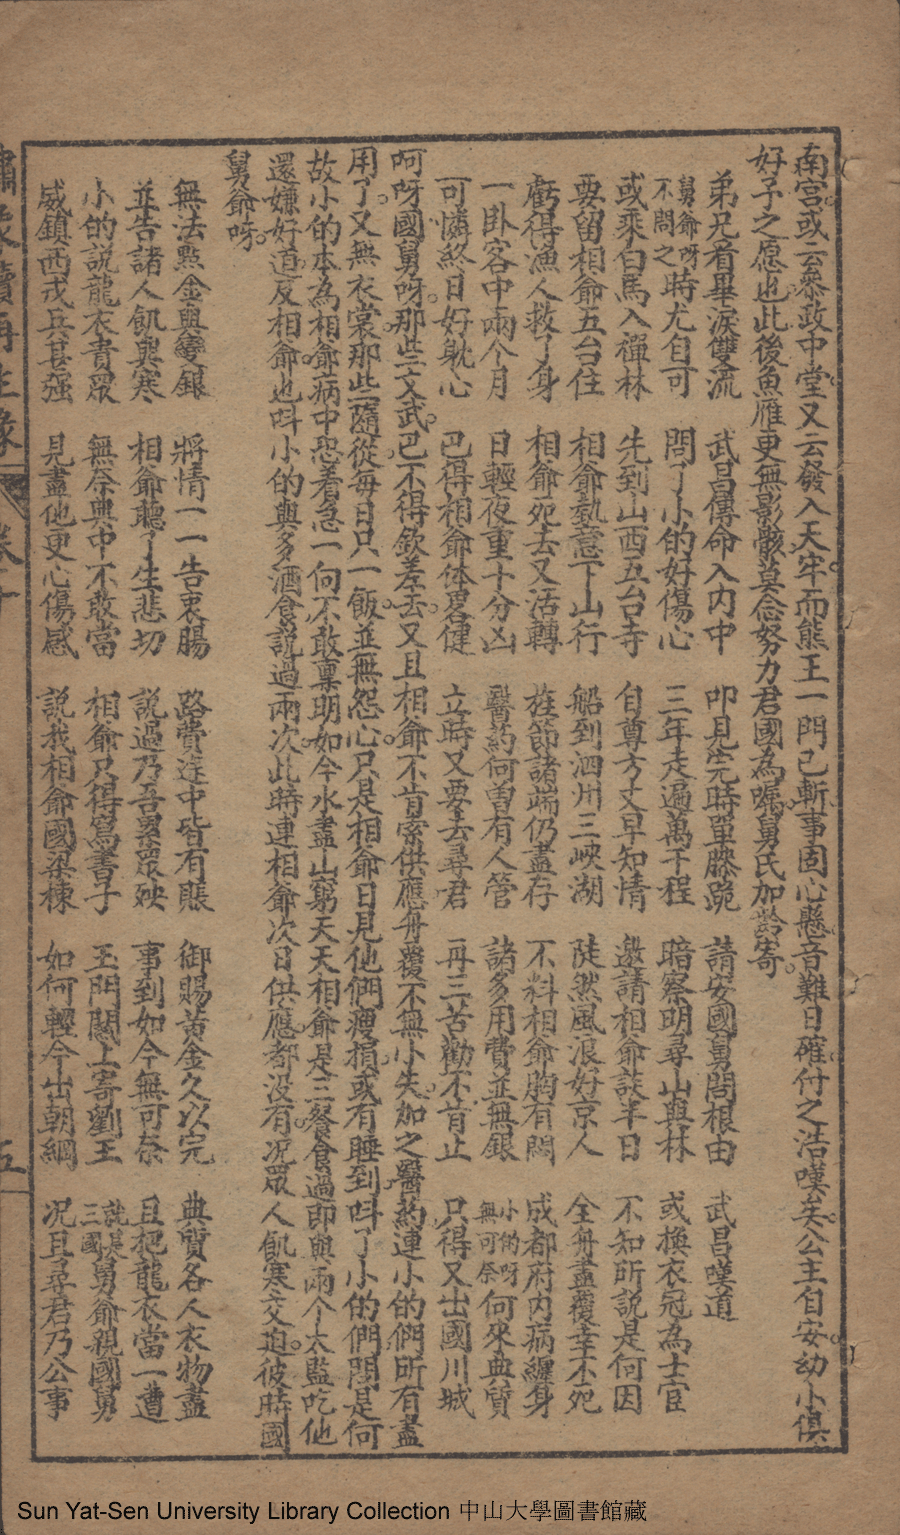 南宮或云叅政中堂又云發入天牢而熊王一門已斬事固心懸音難日確付之浩嘆矣公主自安幼小俱
好子之愿也此後魚雁更無影骸莫念努力君國為嘱舅氏加齡寄
弟兄看畢淚雙流 武昌傳命入內中 叩見完時單膝跪 請安國舅問根由 武昌嘆道
舅爺呀不問之時尤自可 問了小的好傷心 三年走遍萬千程 暗察明尋山與林 或換衣冠為士宦
或乘白馬入禪林 先到山西五台寺 自尊方丈早知情 邀請相爺談半日 不知所説是何因
要留相爺五台住 相爺執意下山行 船到泗州三峽湖 陡然風浪好京人 全舟盡覆幸不死
虧得漁人救了身 相爺死去又活轉 旌節諸端仍盡存 不料相爺胸有悶 成都府内病纏身
一卧客中兩个月 日輕夜重十分凶 醫葯何曾有人管 諸多用費並無銀 小的呀無可奈何來典質
可憐終日好躭心 已得相爺体畧健 立時又要去尋君 再三苦勸不肯止 只得又出國川城
呵呀國舅呀那些文武已不得欽差去又且相爺不肯索供應舟覆不無小失加之醫葯連小的們所有盡
用了又無衣裳那些隨從每日只一飯並無怨心只是相爺日見他們瘦損或有睡到呌了小的們問是何
故小的本為相爺病中恐着急一向不敢稟明如今水盡山窮天天相爺是三餐食過即與兩个太監吃他
還嫌好道反相爺也呌小的與多酒食説過兩次此時連相爺次日供應都没有况眾人飢寒交迫彼時國
舅爺呀
無法㸃金與變銀 將情一一告衷腸 路費途中皆有賬 御賜黃金久以完 典質各人衣物盡
並告諸人飢與寒 相爺聽了生悲切 説過乃吾累眾殃 事到如今無可奈 且把龍衣當一遭
小的説龍衣貴眾 無奈典中不敢當 相爺只得寫書子 玉門關上寄劉王 説與三國舅爺親國舅
威鎮西戎兵甚强 見書他更心傷感 説我相爺國梁棟 如何輕今出朝綱 况且尋君乃公事
繡像續再生緣 卷十
五
Sun Yat-Sen University Library Collection 中山大學圖書館藏